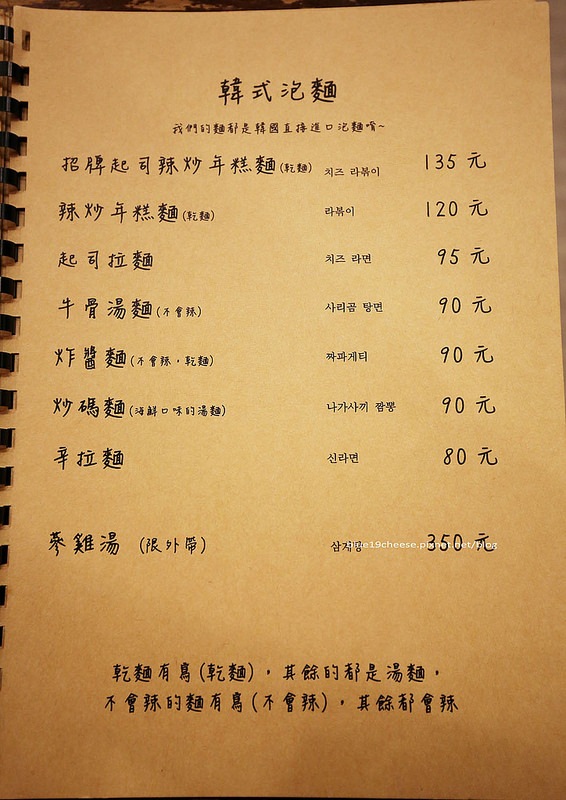 韓式泡麵
我們的麵都是韓國直接進口泡麵唷~
招牌起司辣炒年糕麵(乾麵) 치즈 라볶이 135 元
辣炒年糕麵(乾麵) 라볶이 120 元
起司拉麵 치즈 라면 95 元
牛骨湯麵(不會辣) 사리곰 탕면 90 元
炸醬麵(不會辣，乾麵) 짜파게티 90 元
炒碼麵(海鮮口味的湯麵) 나가사끼 짬뽕 90 元
辛拉麵 신라면 80 元
蔘雞湯 (限外帶) 삼계탕 350 元
乾麵有寫(乾麵)，其餘的都是湯麵，
不會辣的麵有寫(不會辣)，其餘都會辣